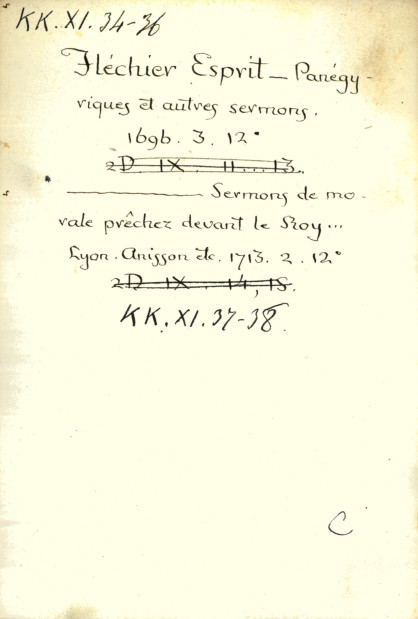 KK.XI.34-36
Fléchier Esprit — Panégy-
riques et autres sermons.
1696. 3. 12°
2D IX 11...13.
———— Sermons de mo-
rale prêchez devant le Roy...
Lyon. Anisson etc. 1713. 2. 12°
2D IX 14, 15.
KK.XI.37-38.
C